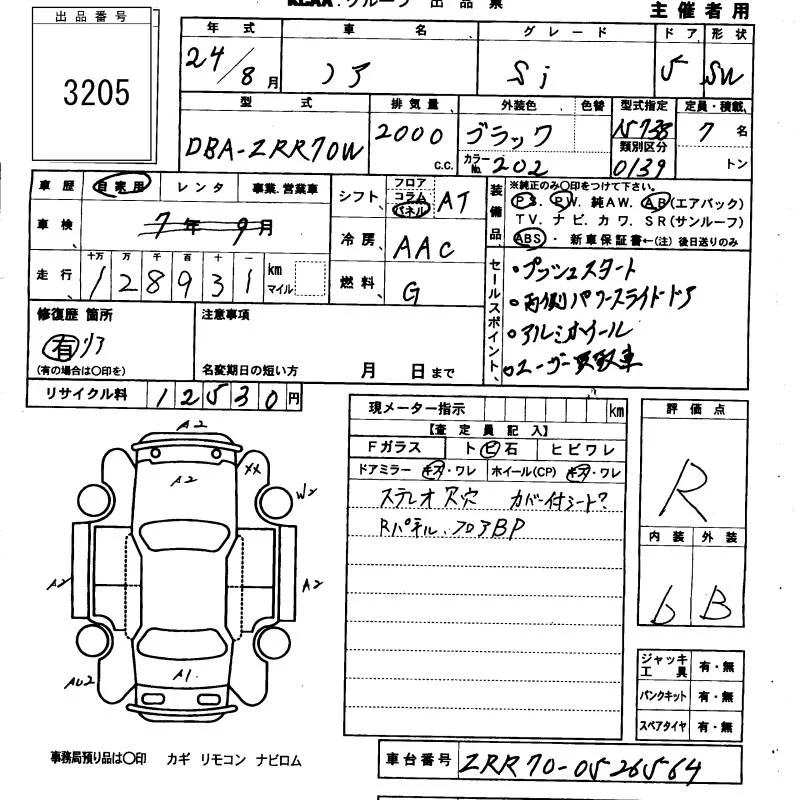 KCAA.グループ 出品票
主催者用
出品番号
3205
年式 車名 グレード ドア 形状
24/8月 ノア Si 5 SW
型式 排気量 外装色 色替 型式指定 定員・積載
DBA-ZRR70W 2000 c.c. ブラック カラーNo. 202 15738 類別区分 0139 7名 トン
車歴 自家用 レンタ 事業.営業車
車検 7年9月
走行 十万 万 千 百 十 一 km マイル
128931
シフト フロア コラム パネル AT
冷房 AAC
燃料 G
装備品
※純正のみ○印をつけて下さい。
P.S. P.W. 純AW. A.B(エアバック)
TV. ナビ. カワ. SR(サンルーフ)
ABS・新車保証書←(注) 後日送りのみ
セールスポイント
・プッシュスタート
・両側パワースライドドア
・アルミホイール
・ユーザー買取車
修復歴 箇所
有 リア
(有の場合は○印を)
注意事項
名変期日の短い方 月 日まで
リサイクル料 12530円
現メーター指示 km
【査定員記入】
Fガラス トビ石 ヒビワレ
ドアミラー キズ・ワレ ホイール(CP) キズ・ワレ
ステレオ欠穴 カバー付シート?
Rパネル.フロアBP
評価点
R
内装 外装
b B
A2
A2
XX
W2
A2
A2
AU2
A1.
ジャッキ工具 有・無
パンクキット 有・無
スペアタイヤ 有・無
事務局預り品は○印 カギ リモコン ナビロム
車台番号 ZRR70-0526564